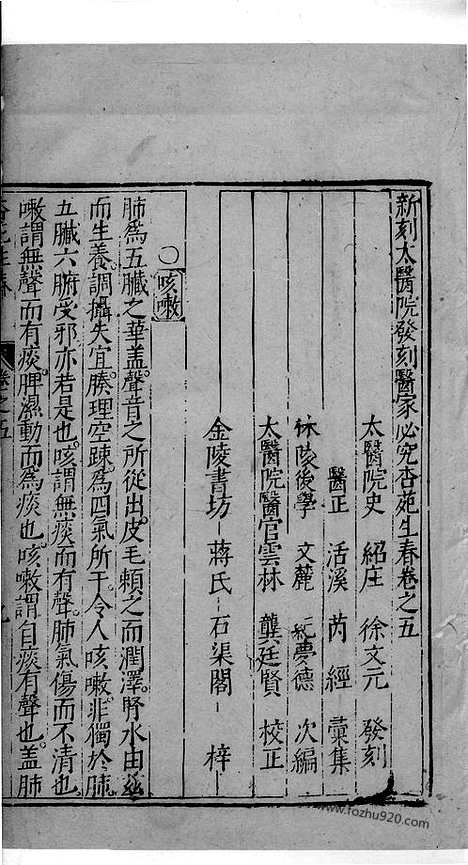 新刻太醫院發刻醫家必究杏苑生春卷之五
太醫院史 紹庄 徐文元 發刻
醫正 活溪 芮經 彙集
休陵後學 文麓 紀夢德 次編
太醫院醫官雲林 龔廷賢 校正
金陵書坊 蔣氏 石渠閣 梓
○咳嗽
肺為五臟之華盖聲音之所從出皮毛賴之而潤澤腎水由茲
而生養調攝失宜腠理空踈為四氣所干令人咳嗽非獨於肺
五臟六腑受邪亦若是也咳謂無痰而有聲肺氣傷而不清也
嗽謂無聲而有痰脾濕動而為痰也咳嗽謂自痰有聲也盖肺
杏苑生春 卷之五
www.fozhu920.com